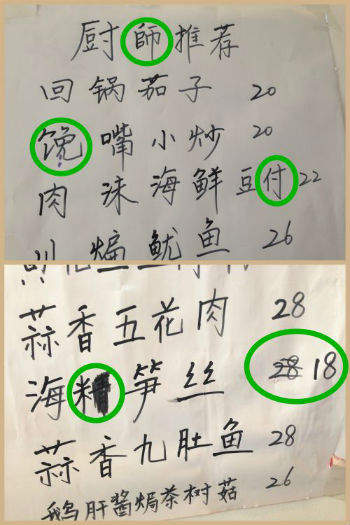 厨師推荐
回锅茄子 20
馋嘴小炒 20
肉沫海鲜豆付 22
鱿鱼 26
蒜香五花肉 28
海 笋丝 18
蒜香九肚鱼 28
鹅肝酱焗茶树菇 26